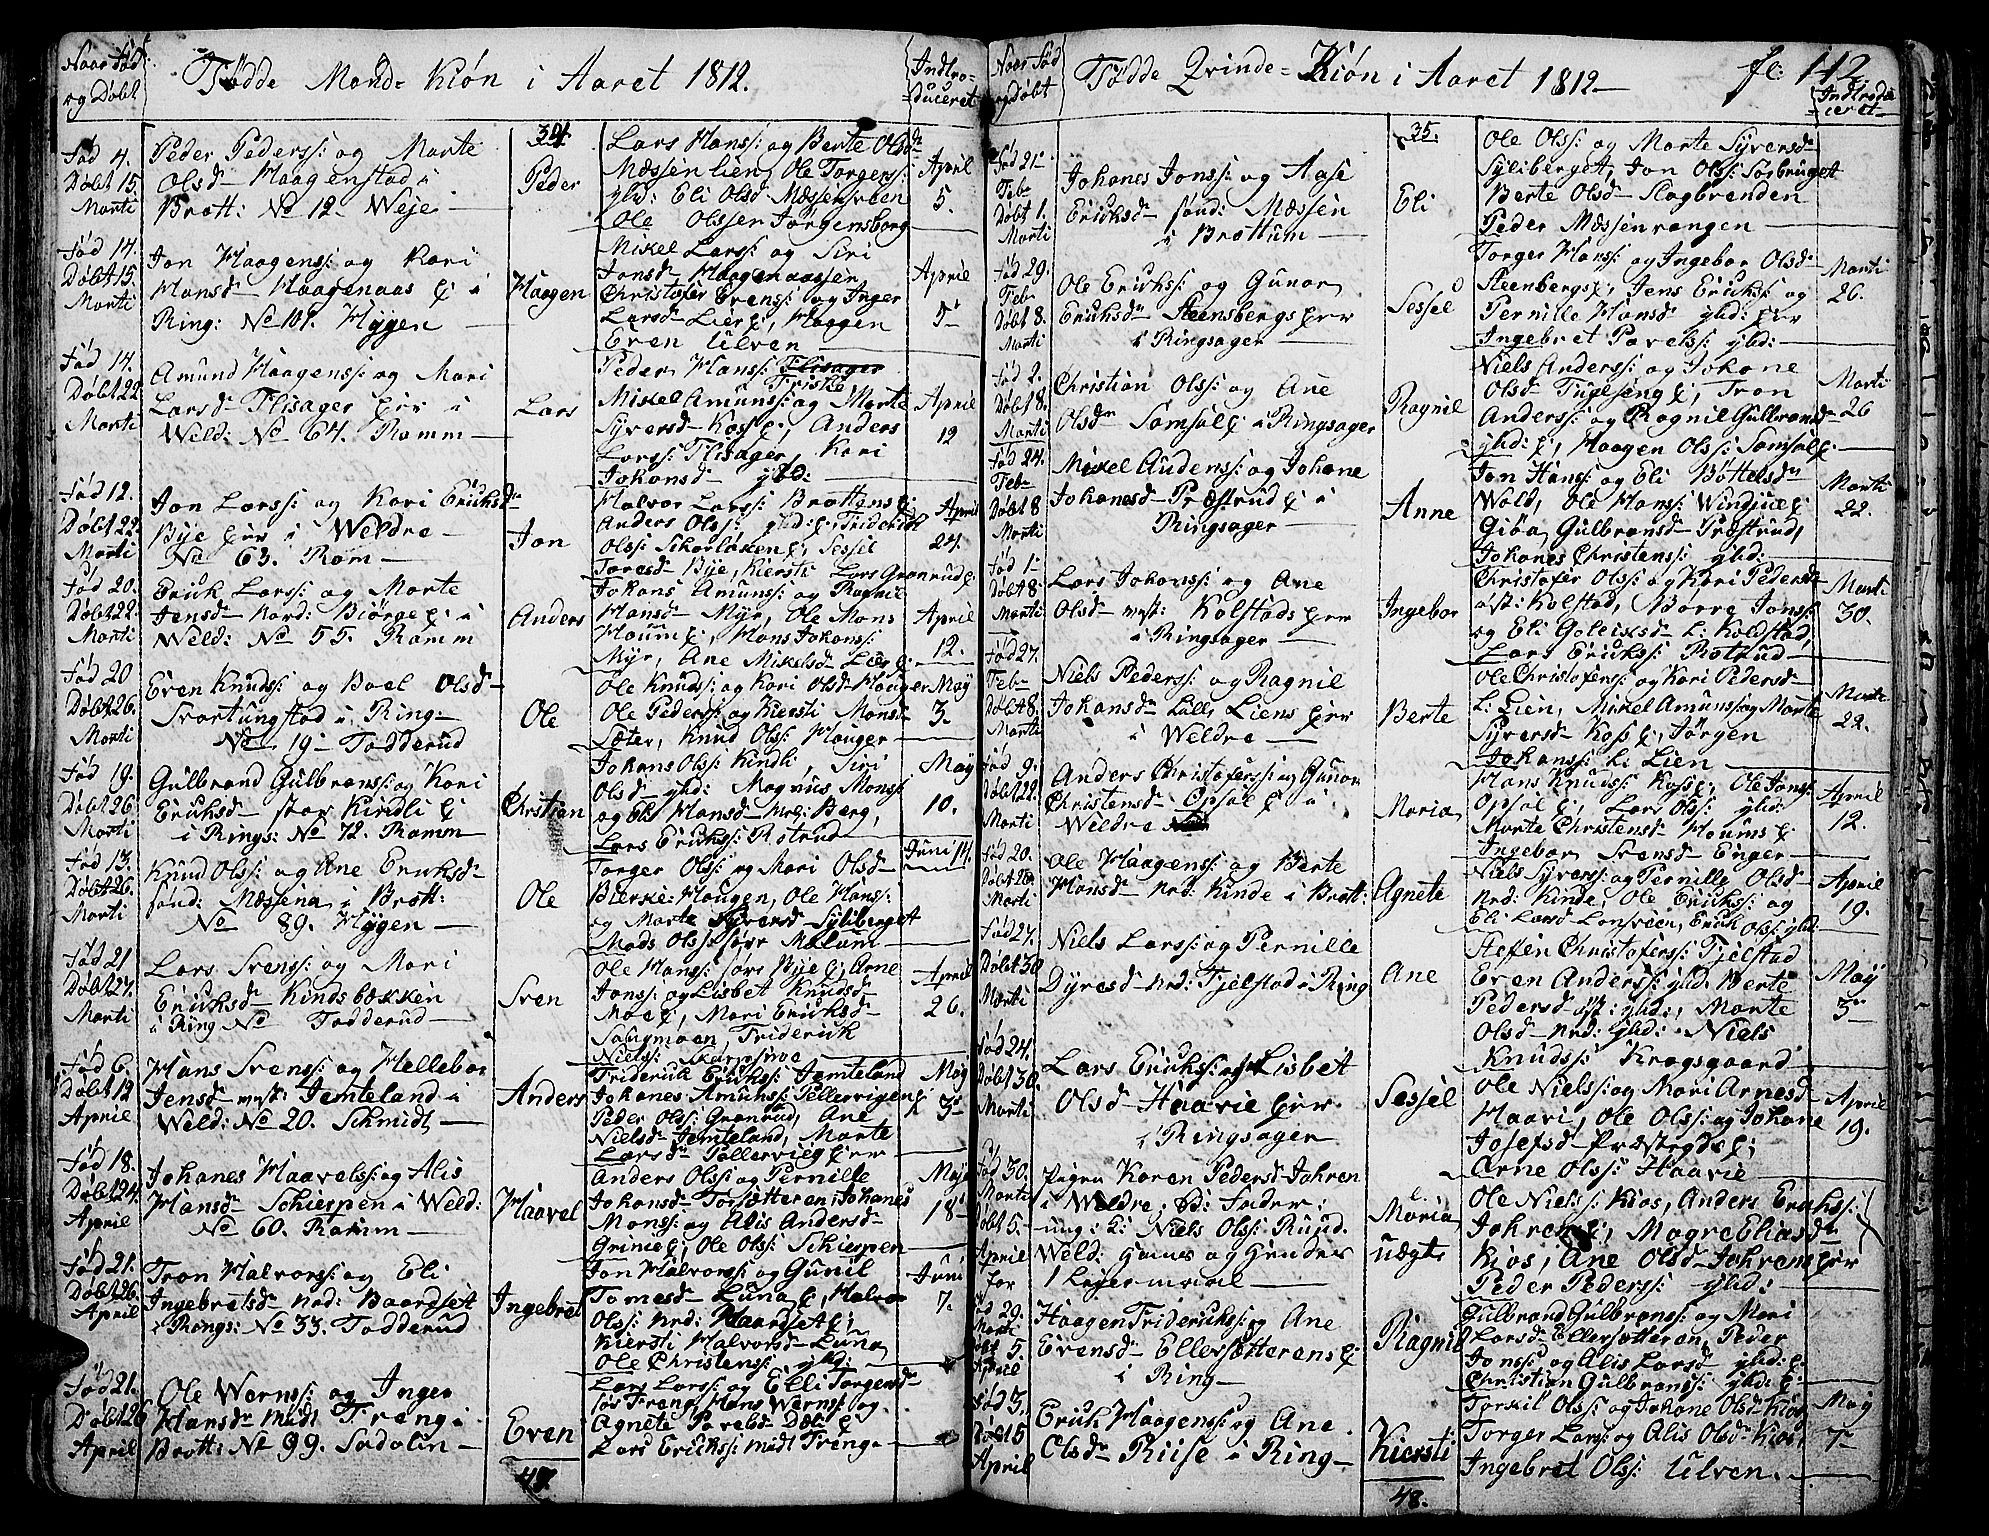 Naar Fød
og Døbt
Fødde Mand-Kiøn i Aaret 1812.
Indtro-
duceret
34.
Fød 4.
Døbt 15.
Marti
Peder Peders: og Marte
Olsd Haagenstad i
Brott: No 12 Weje
Peder
Lars Hans: og Berte Olsd
Mæssenlien, Ole Torgers:
ylid: Eli Olsd Mæssenveen
Ole Olssen Jørgensborg
April
5.
Fød 14.
Døbt 15.
Marti
Jon Haagens: og Kari
Hansd Haagenaas E i
Ring: No 101. Hygen
Haagen
Mikel Lars: og Siri
Jonsd Haagenaasen
Christofer Evens: og Inger
Larsd Lier E, Haagen
Even Ulven
April
5
Fød 14.
Døbt 22
Marti
Amund Haagens: og Mari
Larsd Flisager i
Weld: No 64. Ramm
Lars
Peder Hans: Flisager
Friske
Mikel Amuns: og Marte
Syversd Koss E, Anders
Larss: Flisager, Kari
Johansd ylid:
April
12
Fød 12.
Døbt 22.
Marti
Jon Lars: og Kari Ericksd
Bye i Weldre
No 63. Ram
Jon
Halvor Lars: Brattens E
Anders Ols: ylid: E, Friderich
Ols: Skarløken E, Sessel
Toresd Bye, Kiersti Lars Grønrud E
April
24.
Fød 20.
Døbt 22.
Marti
Erick Lars: og Marte
Jensd nord: Biørge E i
Weld: No 55. Ramm
Anders
Johans Amuns: og Ragnil
Hansd Myr, Ole Mons
Houm E, Hans Johans:
Myr, Ane Mikelsd Lier E
April
12.
Fød 20
Døbt 26.
Marti
Even Knuds: og Boel Olsd
Svartungstad i Ring:
No 19 Fodderud
Ole
Ole Knuds: og Kari Olsd Hauger
Ole Peders: og Kiersti Monsd
Sæter, Knud Ols: Hauger
May
3.
Fød 19.
Døbt 26.
Marti
Gulbrand Gulbrans: og Kari
Ericksd stor Kindli E
i Rings: No 72. Ramm
Christian
Johans Ols: Kindli, Siri
Olsd ylid: Magnus Mons:
og Eli Hansd Berg,
Lars Ericks: Rostrud
May
10.
Fød 13.
Døbt 26.
Marti
Knud Ols: og Ane Ericksd
sønd: Mæssena i Brott:
No 89. Hygen
Ole
Torger Ols: og Mari Olsd
Bierke-Haugen, Ole Hans:
og Marte Syversd Syliberget
Mads Ols: Mælum
Juni 14.
Fød 21
Døbt 27.
Marti
Lars Svens: og Mari
Ericksd Kindsbækken
i Ring No Fodderud
Sven
Ole Hans: søre Bye E, Arne
Jons: og Lisbet Knudsd
Moe E, Mari Ericksd
Saugmoen, Friderick
Niels: Skarpsnoe
April
26.
Fød 6.
Døbt 12
April
Hans Svens: og Hellebor
Jensd Jemteland i
Weld: No 20. Schmidt
Anders
Friderick Ericks: Jemteland
Johanes Amuns: Pellervigen E
Peder Ols: Grønrud, Ane
Nielsd Jemteland, Marte
Larsd Pellervig
May
3
Fød 18.
Døbt 24.
April
Johanes Haavels: og Alis
Hansd Schierpen i Weld:
No 60. Ramm
Haavel
Anders Ols: og Pernille
Johansd Torsætteren, Johanes
Mons: og Alis Andersd
Grinie E, Ole Ols: Schierpen
May
18
Fød 21.
Døbt 26.
April
Tron Halvors: og Eli
Ingebretsd nord: Baardset
i Rings: No 33. Fodderud
Ingebret
Jon Halvors: og Gunil
Tomesd Luna E, Halvor
Ols: nrd: Haardset E,
Kiersti Halvorsd Luna,
Ole Christens: ylid:
Juni
7.
Fød 21.
Døbt 26
April
Ole Warns: og Inger
Hansd midt Freng i
Brott: No 99. Sadolin
Even
Lars Lars: og Elli Torgersd
Freng, Hans Warns: og
Agnete Pavelsd Dæli E
Lars Ericks: midt Frenge
47.
Naar Fød
og Døbt
Fødde Qvinde-Kiøn i Aaret 1812
fc: 112.
Indtrodu-
ceret
35.
Fød 21
Feb
Døbt 1.
Marti
Johanes Jons: og Aase
Ericksd sønd: Mæssen
i Brottum
Eli
Ole Ols: og Marte Syversd
Syliberget, Jon Ols: Sørbruget
Berte Olsd Slagbrenden
Peder Mæssenvangen
Fød 29.
Feb
Døbt 8.
Marti
Ole Ericks: og Gunor
Ericksd Steensbergs
i Ringsager
Sessel
Torger Hans: og Ingebor Olsd
Steenbergs E, Jens Ericks: og
Pernille Hansd ylid:
Ingebret Pavels: ylid:
Marti
26.
Fød 2.
Døbt 8.
Marti
Christian Ols: og Ane
Olsd Samsal E i Ringsager
Ragnil
Niels Anders: og Johane
Olsd Fugleseng E, Tron
Anders: og Ragnil Gulbransd
ylid: E, Haagen Ols: Samsal E
Marti
26
Fød 24.
Feb
Døbt 8
Marti
Mikel Andens: og Johane
Johanesd Præstrud E i
Ringsager
Anne
Jon Hans: og Eli Bøttelsd
Wold, Ole Hans: Windjue E
Giøa Gulbransd Frøstrud,
Johanes Christens: ylid:
Marti
22.
Fød 1
Døbt 8.
Marti
Lars Johans: og Ane
Olsd Kolstads
i Ringsager
Ingebor
Christofer Ols: og Kari Pedersd
øst: Kolstad, Børre Jons:
og Eli Goleiksd L: Koldstad,
Lars Ericks: Rostrud
Marti
30.
Fød 27.
Feb
Døbt 8.
Marti
Niels Peders: og Ragnil
Johansd Lille Liens
i Weldre
Berte
Ole Christofers: og Kari Pedersd
L: Lien, Mikel Amuns: og Marte
Syversd Koss E, Jørgen
Johans: L: Lien
Marti
22.
Fød 9.
Døbt 22.
Marti
Anders Christofers: og Gunor
Christensd Opsal E i
Weldre
Maria
Hans Knuds: Koss E, Ole Jons:
Opsal E, Lars Ols: ylid:
Marte Christensd Houms E,
Ingebor Svensd Enger
April
12.
Fød 20.
Døbt 26.
Marti
Ole Haagens: og Berte
Hansd nrd: Kinde i Brott:
Agnete
Niels Syvers: og Pernille Olsd
nrd: Kinde, Ole Ericks: og
Eli Larsd Lonsveen, Erick Ols: ylid:
April
19.
Fød 27.
Døbt 30
Marti
Niels Lars: og Pernille
Dyresd nrd: Fjelstad i Ring
Ane
Steffen Christofers: Fjelstad
Even Anders: ylid: Berte
Pedersd øst: ylid:, Marte
Olsd nrd: ylid: Niels
Knuds: Kragsgaard
May
3
Fød 24.
Døbt 30
Marti
Lars Ericks: og Lisbet
Olsd Haavie
i Ringsager
Sessel
Ole Niels: og Mari Arnesd
Haavi, Ole Ols: og Johane
Josefsd Præstegde E,
Arne Ols: Haavie
April
19.
Fød 30.
Marti
Døbt 5
April
Pigen Karen Pedersd Johren
i Weldre, Fader:
ung: K: Niels Ols: Ruud.
Weld: og Hendes
1 Leiermaal
Maria
uægte
Ole Niels: Kios, Anders Ericks:
Johren E, Magre Eliasd
Kios, Ane Olsd Johren
Peder Peders: ylid:
Fød 29.
Marti
Døbt 5.
April
Haagen Fridericks: og Ane
Evensd Ellersætterens E
i Ring
Ragnil
Gulbrand Gulbrans: og Mari
Larsd Ellersætteren, Peder
Jons: og Alis Larsd ylid: E
Christian Gulbrans: ylid: E
Fød 3.
Døbt 5
April
Erick Haagens: og Ane
Olsd Riise i Ring
Kiersti
Torkil Ols: og Johane Olsd Kios
Torger Lars: og Alis Olsd Kios,
Ingebret Ols: Ulven.
May
7
48.